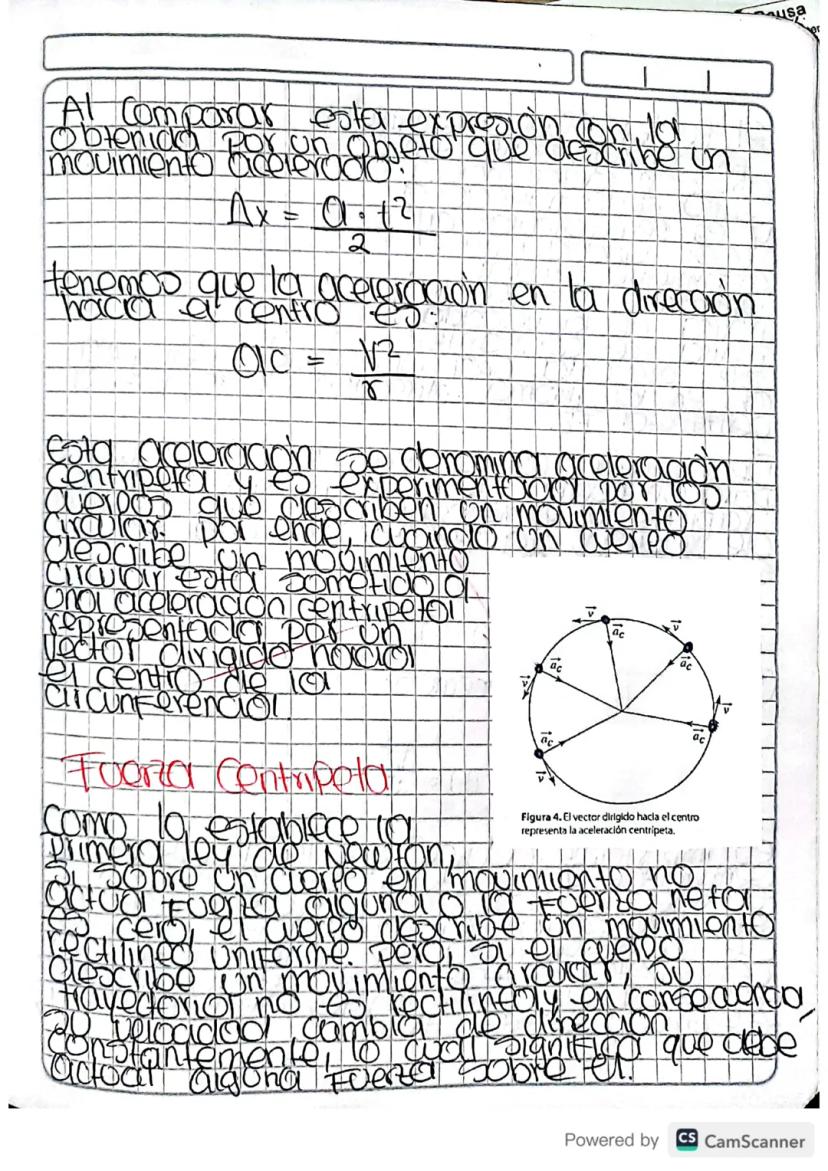 ausa
Al comparar esta expresión con la
obtenida por un objeto que describe un
movimiento acelerado:
Δx = a · t²
2
tenemos que la aceleración en la dirección
hacia el centro es:
ac = V²
r
Esta aceleración se denomina aceleración
centripeta y es experimentada por los
cuerpos que describen un movimiento
circular. por ende, cuando un cuerpo
describe un movimiento
circular esta sometido a
una aceleración centripeta
representada por un
vector dirigido hacia
el centro de la
circunferencia.
v v
ac ac
ac v
v v
ac ac
v
Figura 4. El vector dirigido hacia el centro
representa la aceleración centrípeta.
Fuerza Centripeta
Como lo establece la
primera ley de Newton,
si sobre un cuerpo en movimiento no
actua fuerza alguna o la fuerza neta
es cero, el cuerpo describe un movimiento
rectilineo uniforme. Pero, si el cuerpo
describe un movimiento circular, su
trayectoria no es rectilinea y, en consecuencia,
su velocidad cambia de dirección
constantemente, lo cual significa que debe
actuar alguna fuerza sobre él.
Powered by CS CamScanner